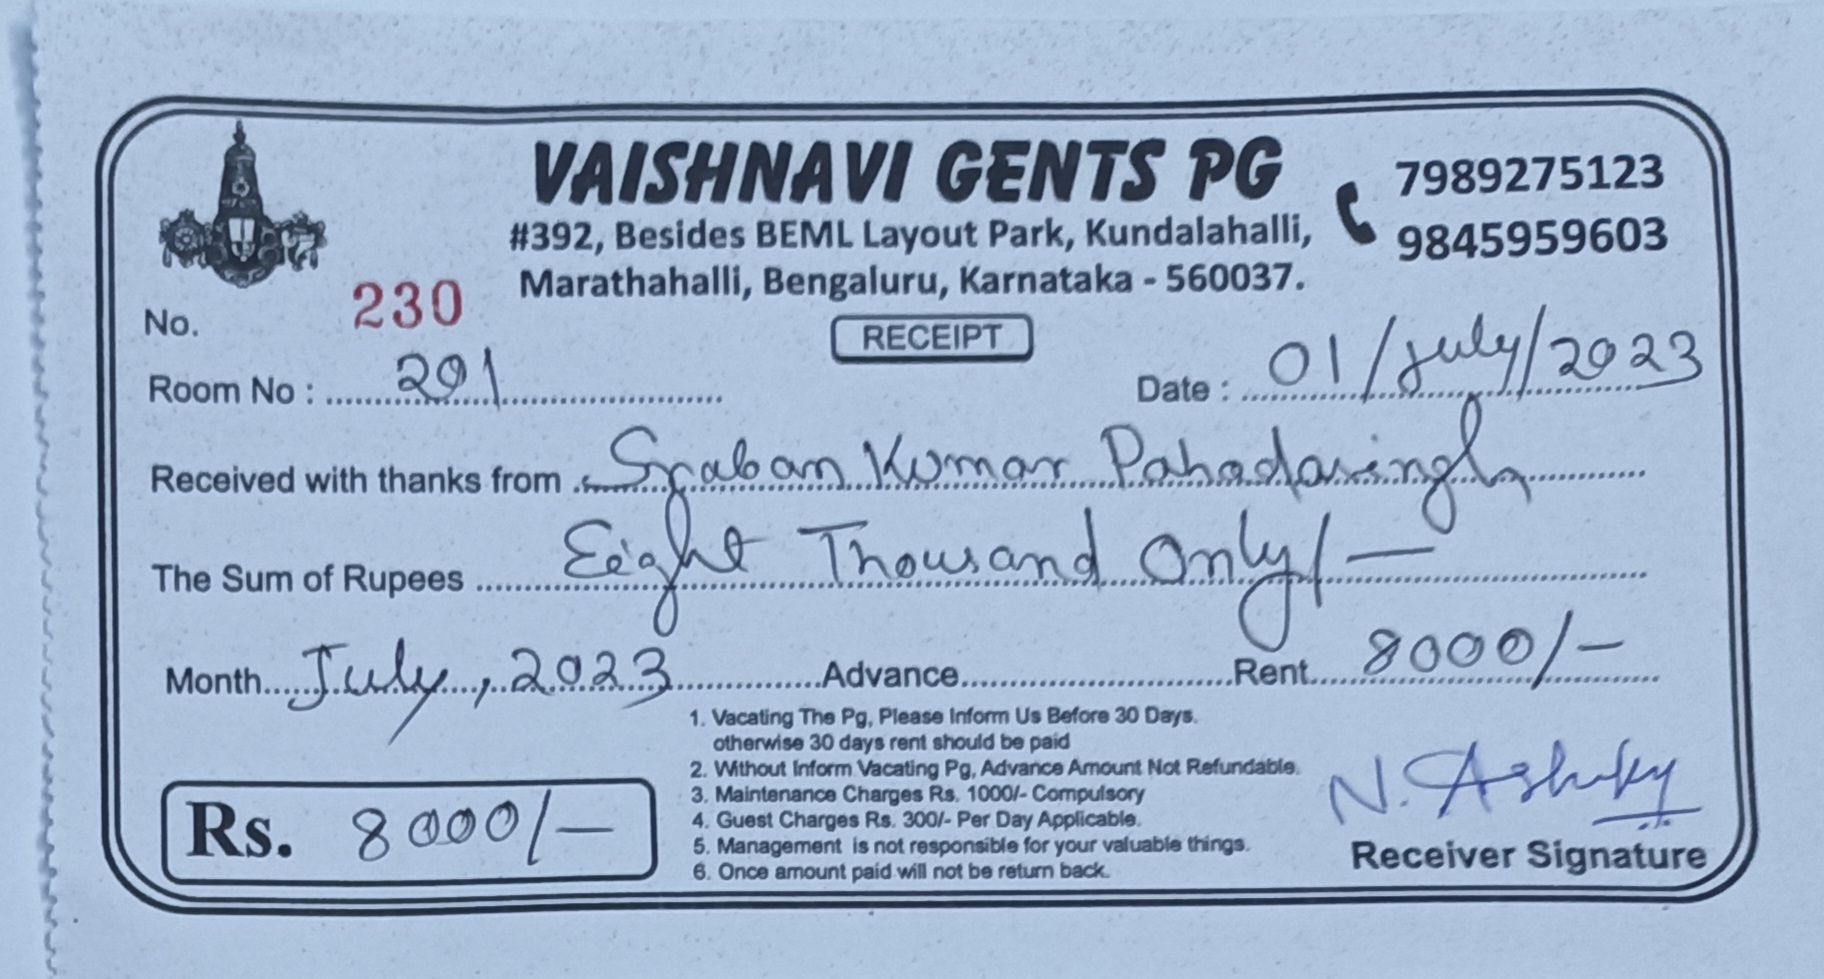 VAISHNAVI GENTS PG
7989275123
9845959603
#392, Besides BEML Layout Park, Kundalahalli,
Marathahalli, Bengaluru, Karnataka - 560037.
No. 230
RECEIPT
Room No : 201
Date : 01/July/2023
Received with thanks from Sraban Kumar Pahadasingh
The Sum of Rupees Eight Thousand Only/-
Month July, 2023 Advance Rent 8000/-
1. Vacating The Pg, Please Inform Us Before 30 Days.
otherwise 30 days rent should be paid
2. Without Inform Vacating Pg, Advance Amount Not Refundable.
3. Maintenance Charges Rs. 1000/- Compulsory
4. Guest Charges Rs. 300/- Per Day Applicable.
5. Management is not responsible for your valuable things.
6. Once amount paid will not be return back.
Rs. 8000/-
N.
Receiver Signature